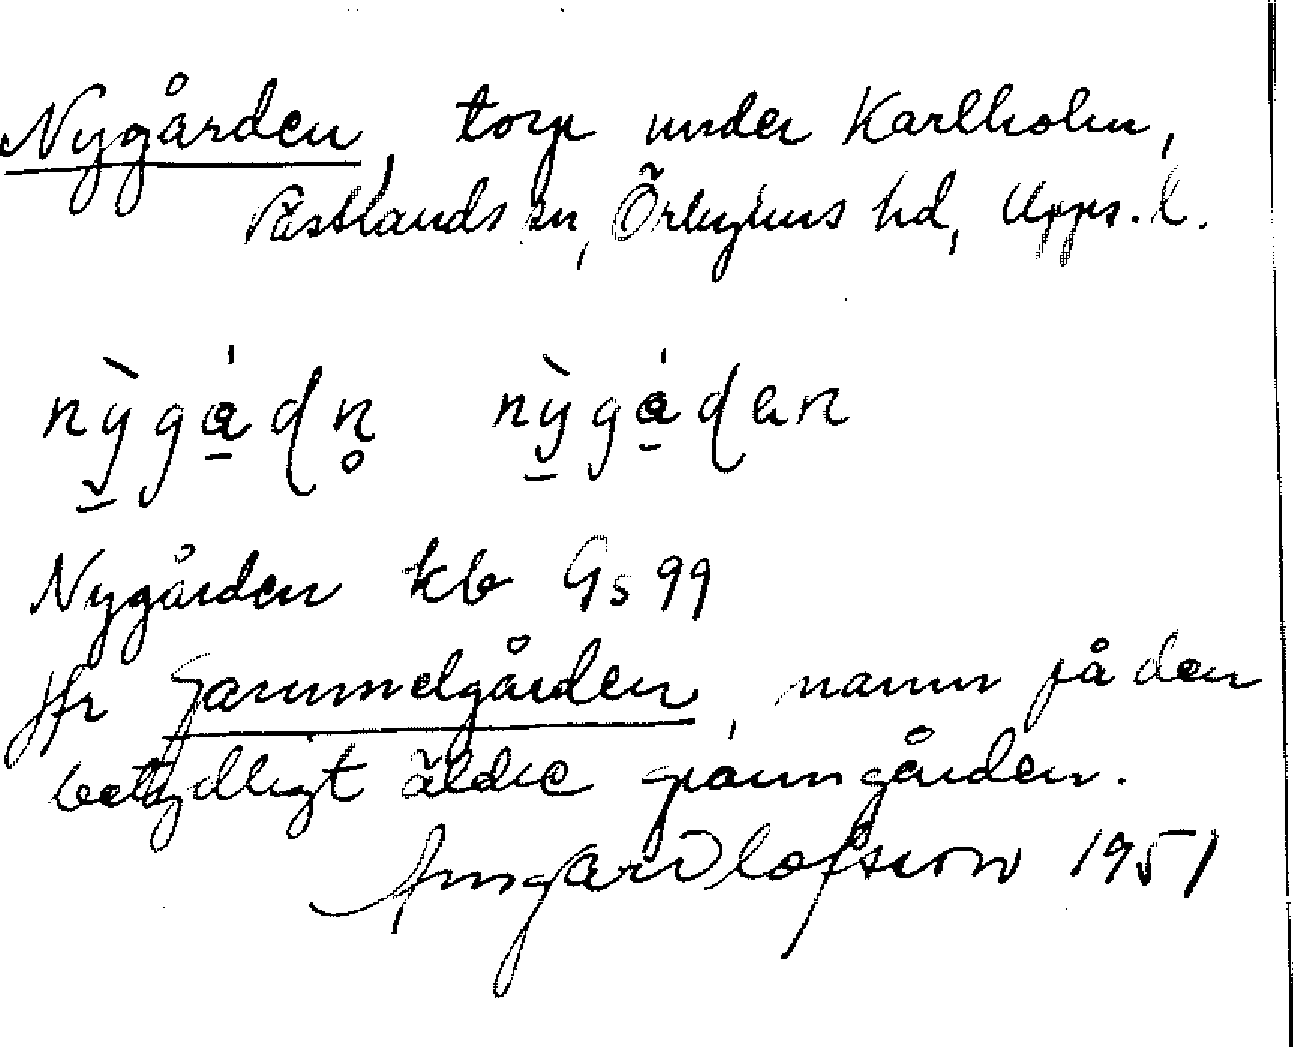 Nygården, torp under Karlholm,
Västlands sn, Örbyhus hd, Upps. l.
nỳgá̱dn̥ nỳgá̱dan
Nygården kb Gs 99
Jfr Gammelgården, namn på den
betydligt äldre granngården.
Ingar Olofsson 1951